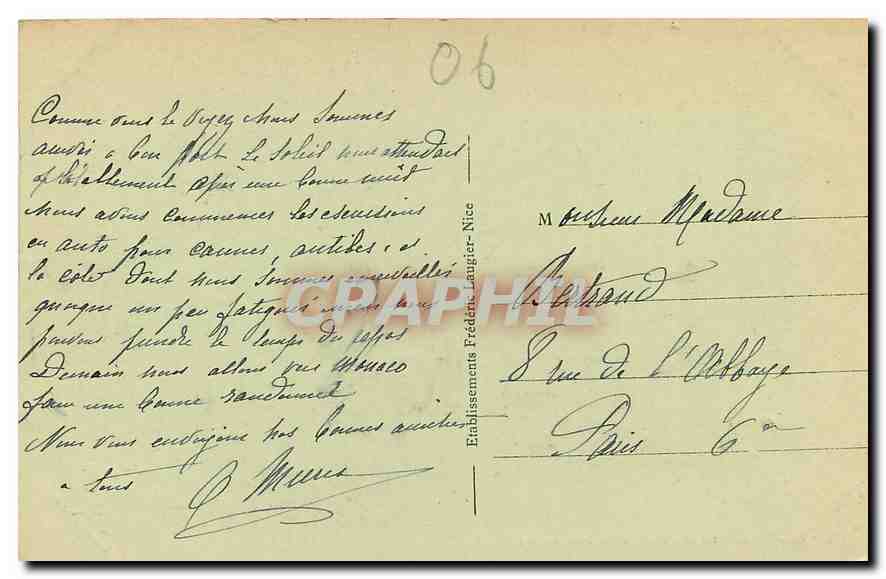 06
Comme vous le voyez nous sommes
arrivés a bon port le soleil nous attendait
après une bonne nuit
nous avons commencer les excursions
en auto pour cannes, antibes, et
la cote dont nous sommes émerveillés
quoique un peu fatigués mais nous
pouvons prendre le temps du repos
Demain nous allons vers Monaco
faire une bonne randonnée
Nous vous envoyons nos bonnes amitiés
a tous
Etablissements Frédéric Laugier-Nice
Monsieur Madame
Bertrand
8 rue de l'Abbaye
Paris 6e
CPAPHIL